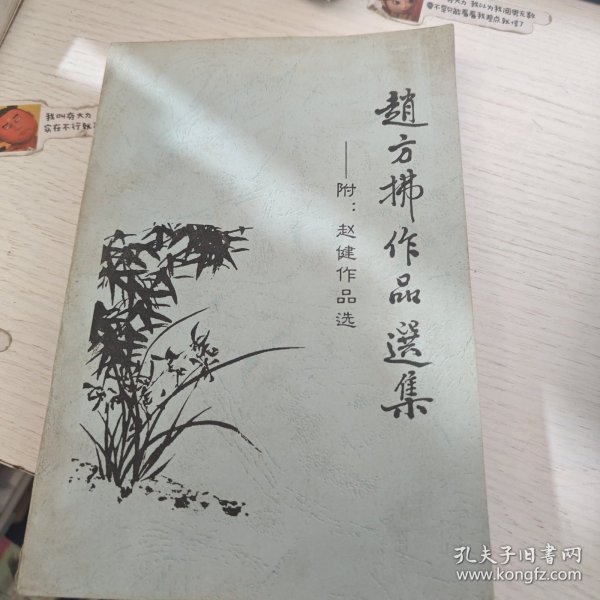 趙方拂作品選集
——附：赵健作品选
我叫夯大力
实在不行就
夯大力 我以为我阅男无数
要不是只能看看我差点就信了
孔夫子旧书网
www.kongfz.com